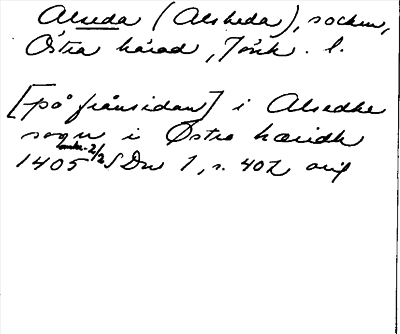 Alseda (Alsheda), socken,
Östra härad, Jönk. l.
[på frånsidan] i Alsedhe
sogn i Østra hæridh
1405 2/2 SDns 1, s. 402 orig